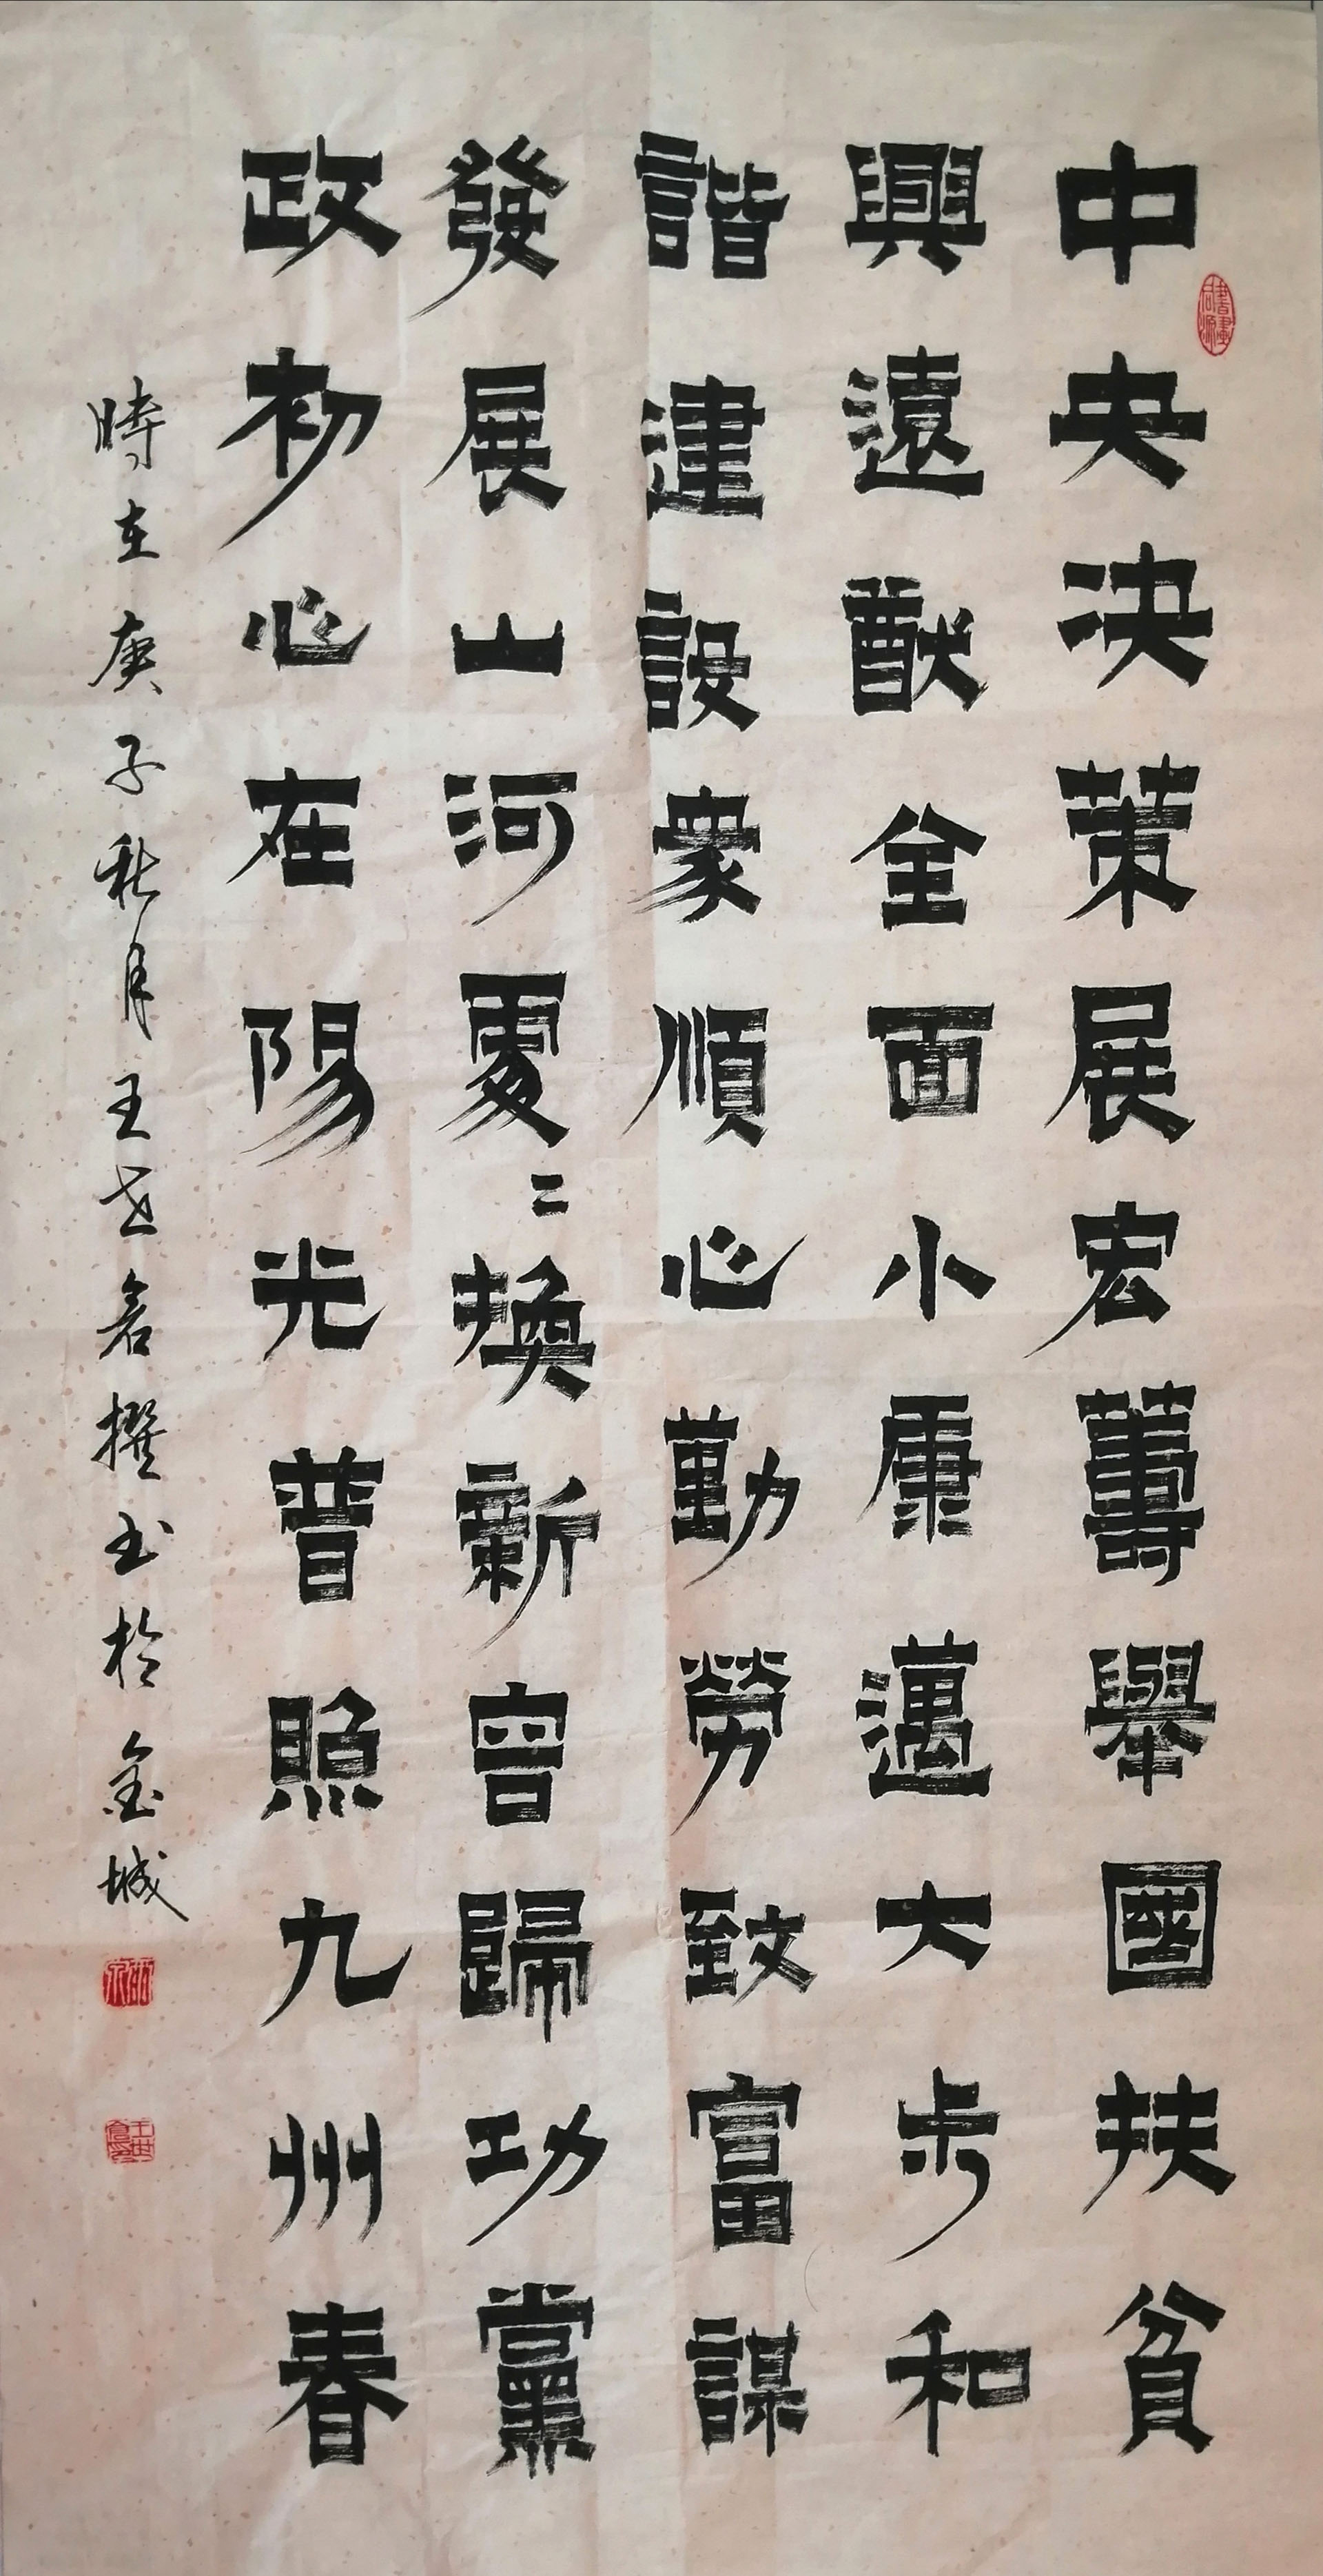 中央決策展宏籌舉國扶貧
興遠猷全面小康邁大步和
諧建設衆順心勤勞致富謀
發展山河處〻換新曾歸功黨
政初心在陽光普照九州春
時在庚子秋月王世宕撰书於金城